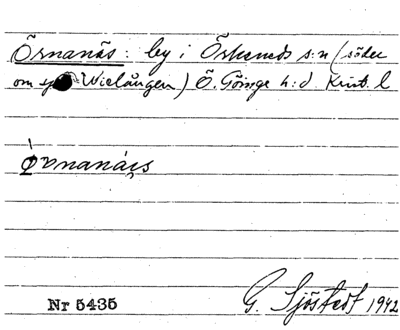 Örnanäs: by i Örkeneds s:n (söder
om sjön Wielången) Ö. Göinge h:d Krist. l
Ǿrnanáęs
Nr 5435 G. Sjöstedt 1942